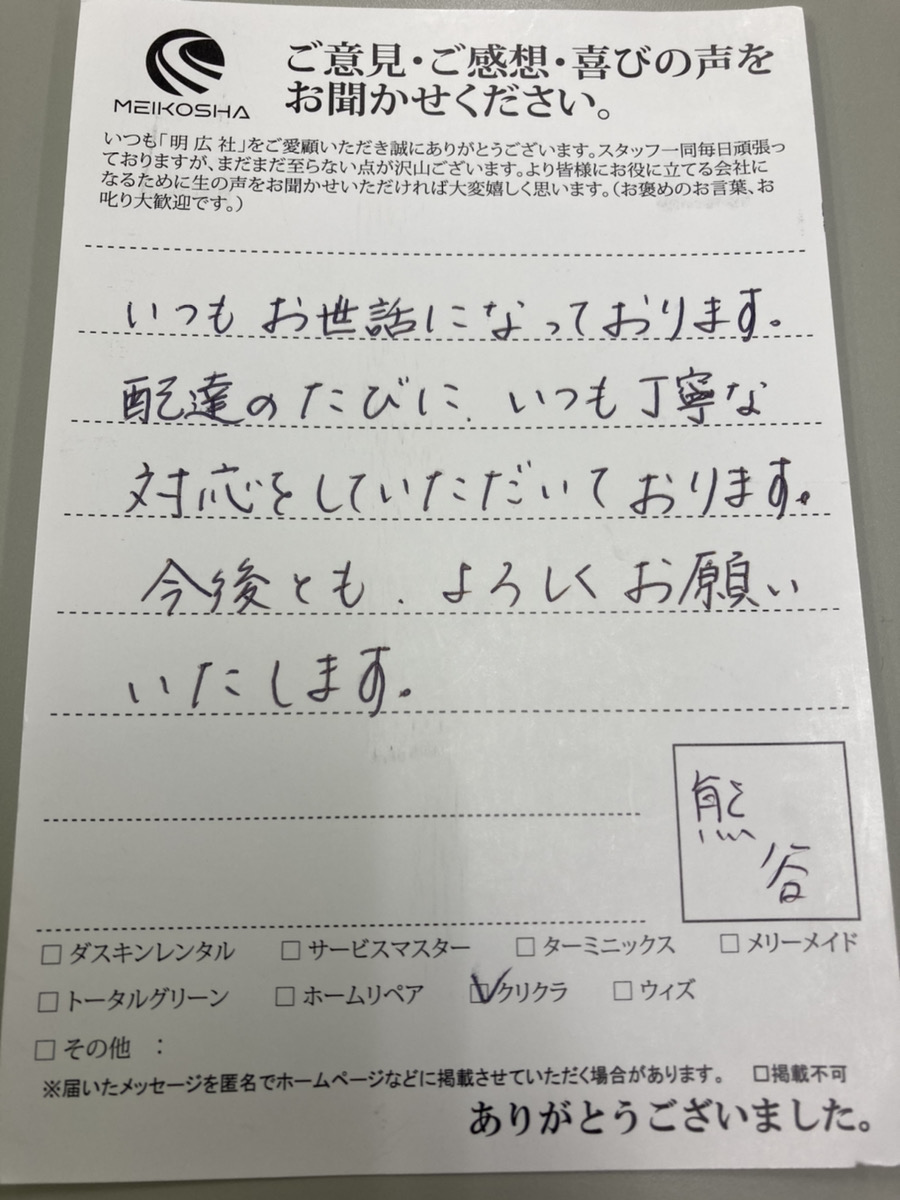 MEIKOSHA
ご意見・ご感想・喜びの声を
お聞かせください。
いつも「明広社」をご愛顧いただき誠にありがとうございます。スタッフ一同毎日頑張っ
ておりますが、まだまだ至らない点が沢山ございます。より皆様にお役に立てる会社に
なるために生の声をお聞かせいただければ大変嬉しく思います。（お褒めのお言葉、お
叱り大歓迎です。）
いつもお世話になっております。
配達のたびに、いつも丁寧な
対応をしていただいております。
今後とも、よろしくお願い
いたします。
熊
谷
□ダスキンレンタル □サービスマスター □ターミニックス □メリーメイド
□トータルグリーン □ホームリペア ☑クリクラ □ウィズ
□その他 ：
※届いたメッセージを匿名でホームページなどに掲載させていただく場合があります。 □掲載不可
ありがとうございました。